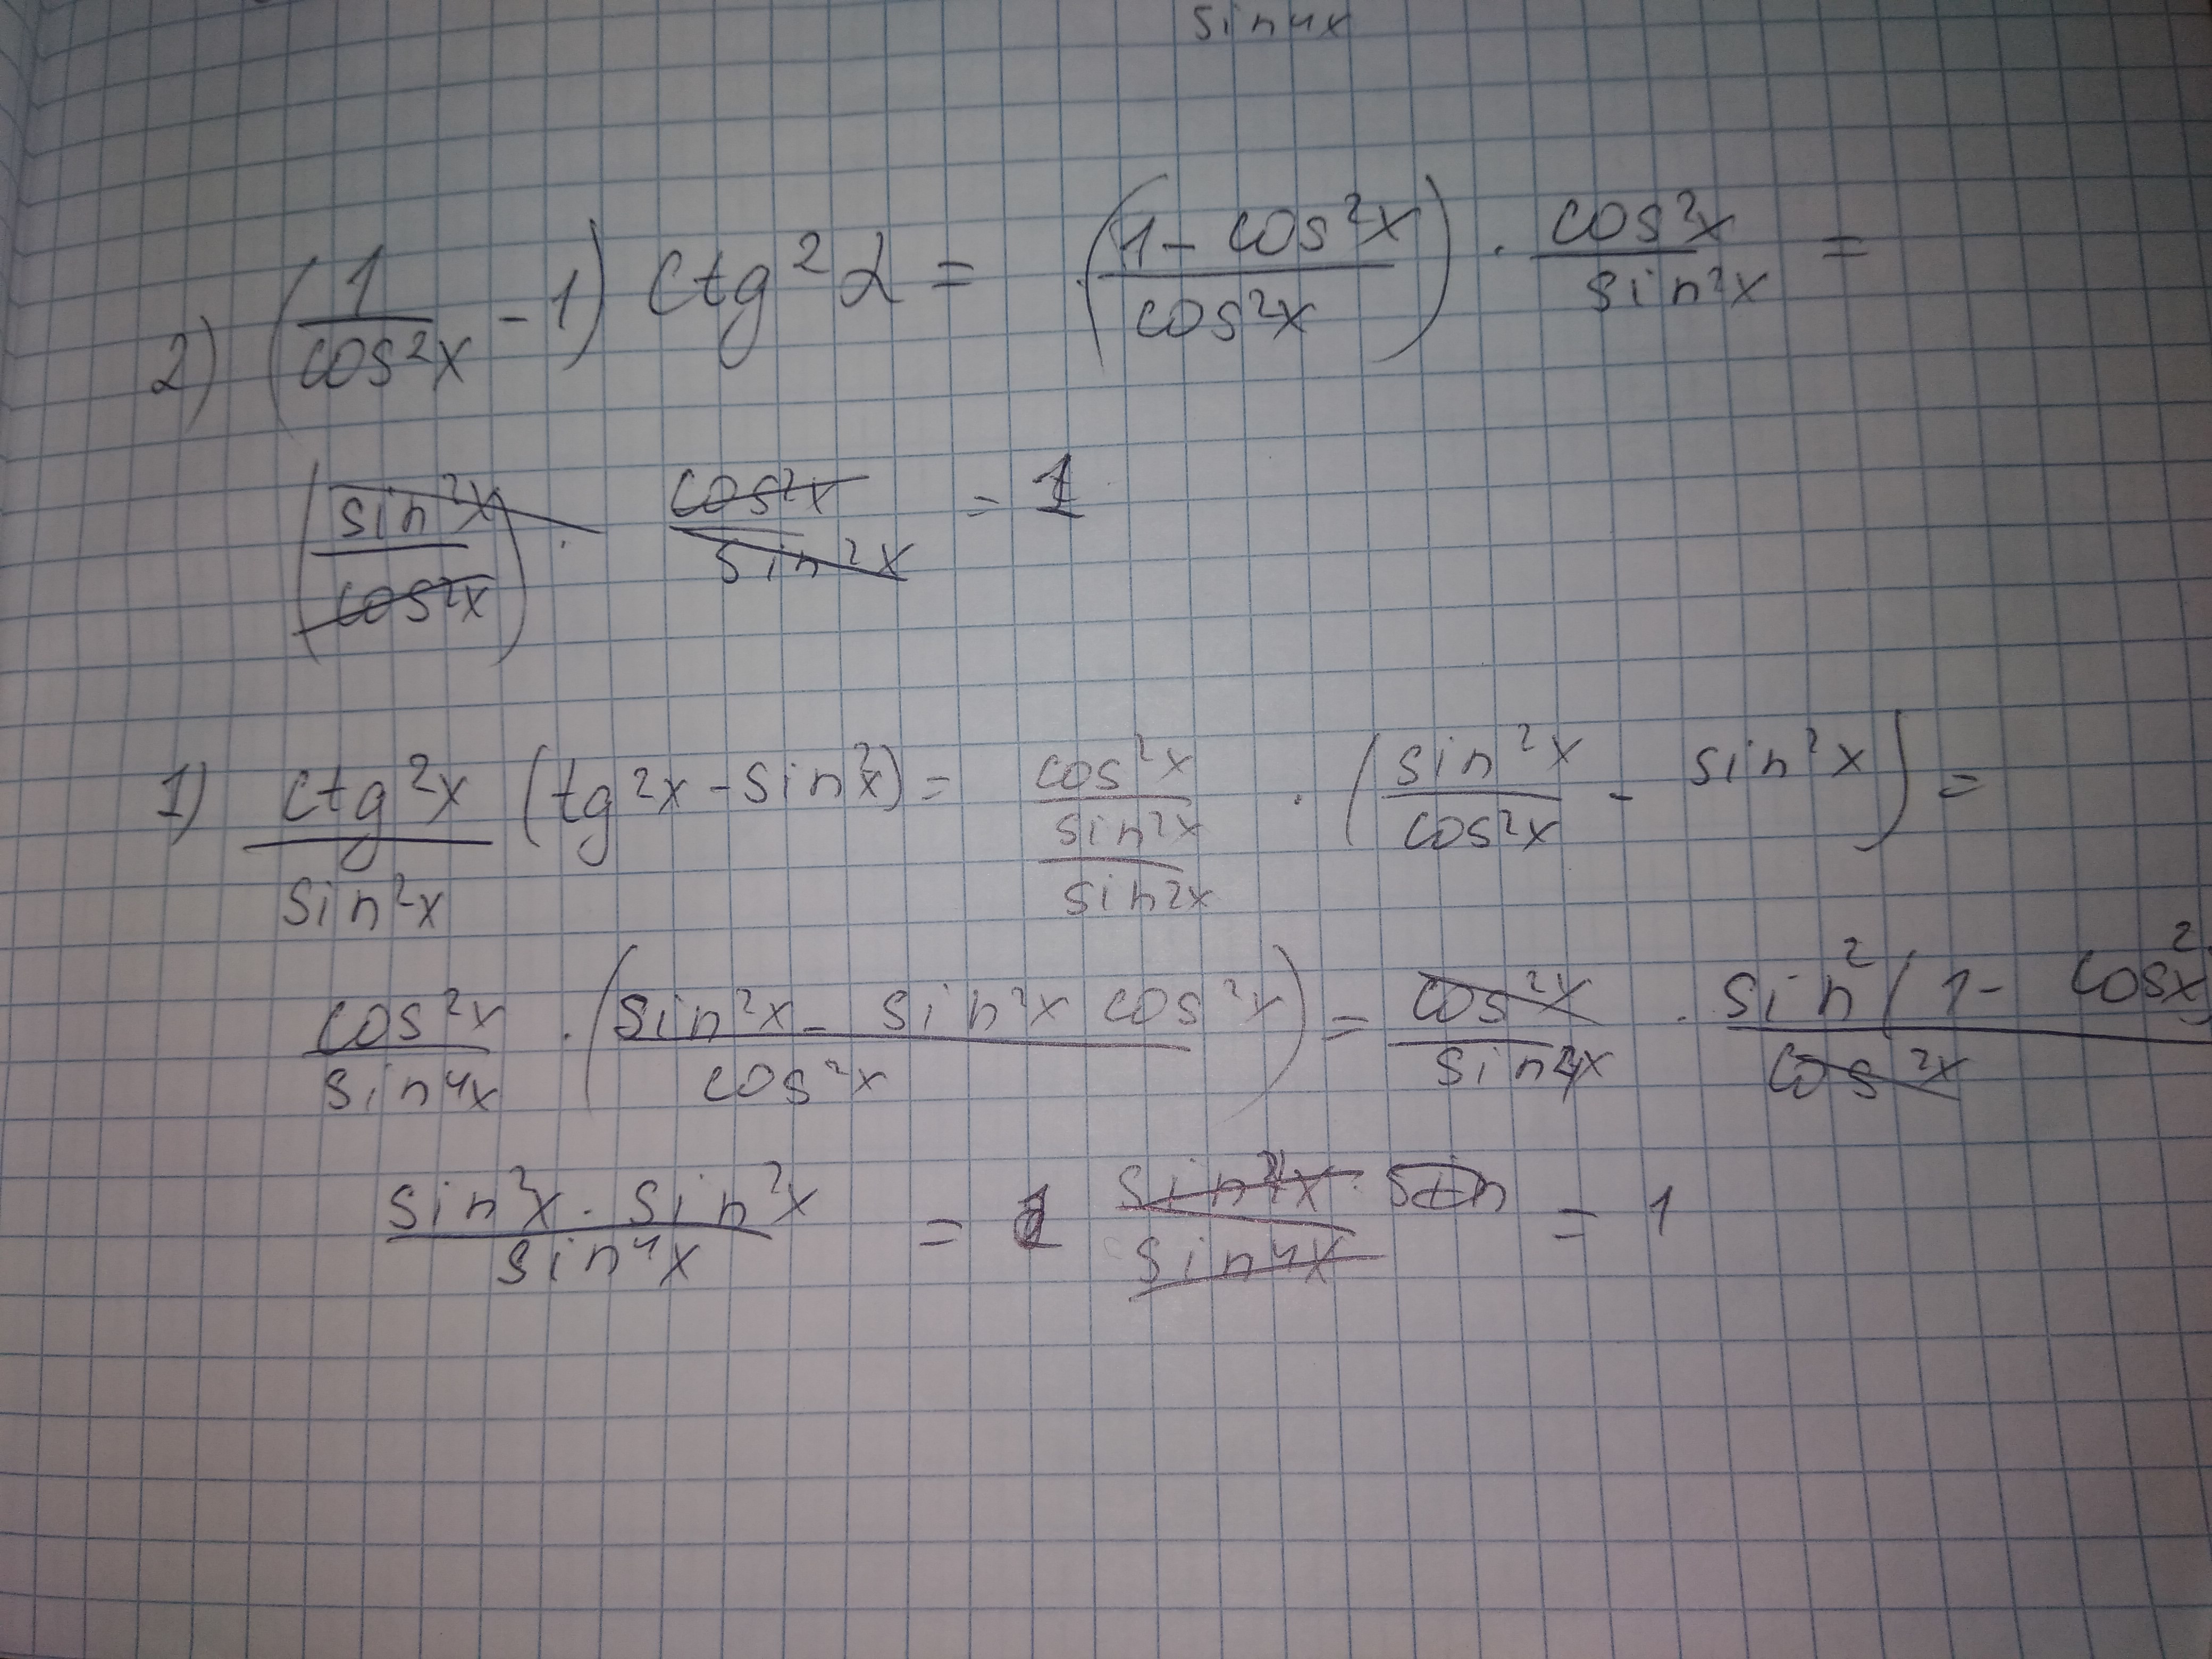 sin⁴x
2) (1/cos²x - 1) ctg²α = ((1 - cos²x)/cos²x) · cos²x/sin²x =
(sin²x/cos²x) · cos²x/sin²x = 1
1) ctg²x/sin²x (tg²x - sin²x) = cos²x/sin²x/sin²x · (sin²x/cos²x - sin²x) =
cos²x/sin⁴x · ((sin²x - sin²x cos²x)/cos²x) = cos²x/sin⁴x · sin²(1 - cos²x)/cos²x
sin²x · sin²x/sin⁴x = sin⁴x/sin⁴x = 1